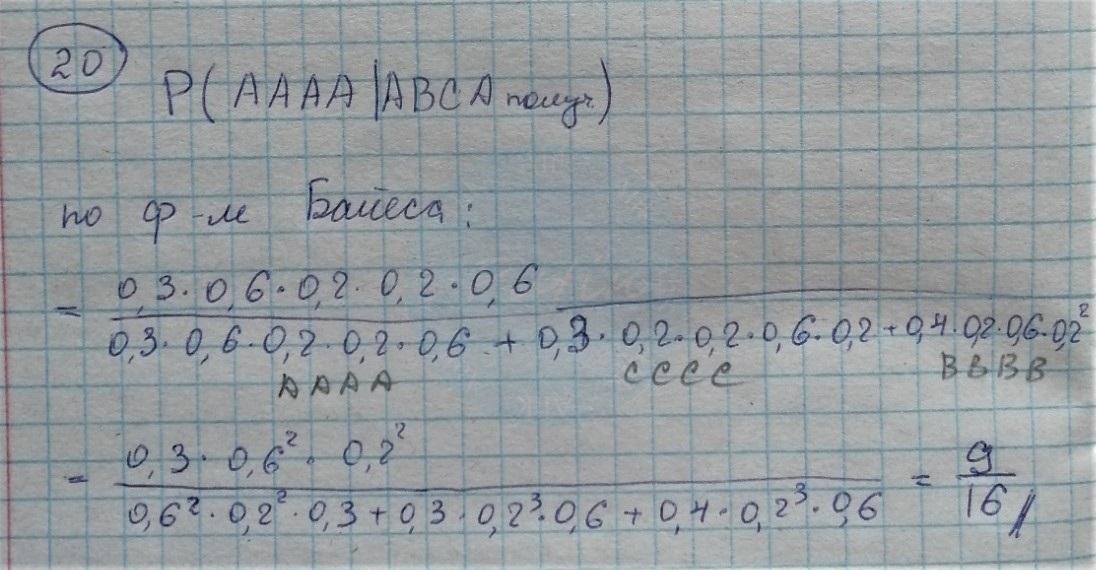 20
P(AAAA|ABCA получ.)
по ф-ле Байеса:
= 0,3·0,6·0,2·0,2·0,6
0,3·0,6·0,2·0,2·0,6 + 0,3·0,2·0,2·0,6·0,2+0,4·0,2·0,6·0,2²
AAAA CCCC BBBB
= 0,3·0,6²·0,2²
0,6²·0,2²·0,3+0,3·0,2³·0,6+0,4·0,2³·0,6 = 9/16